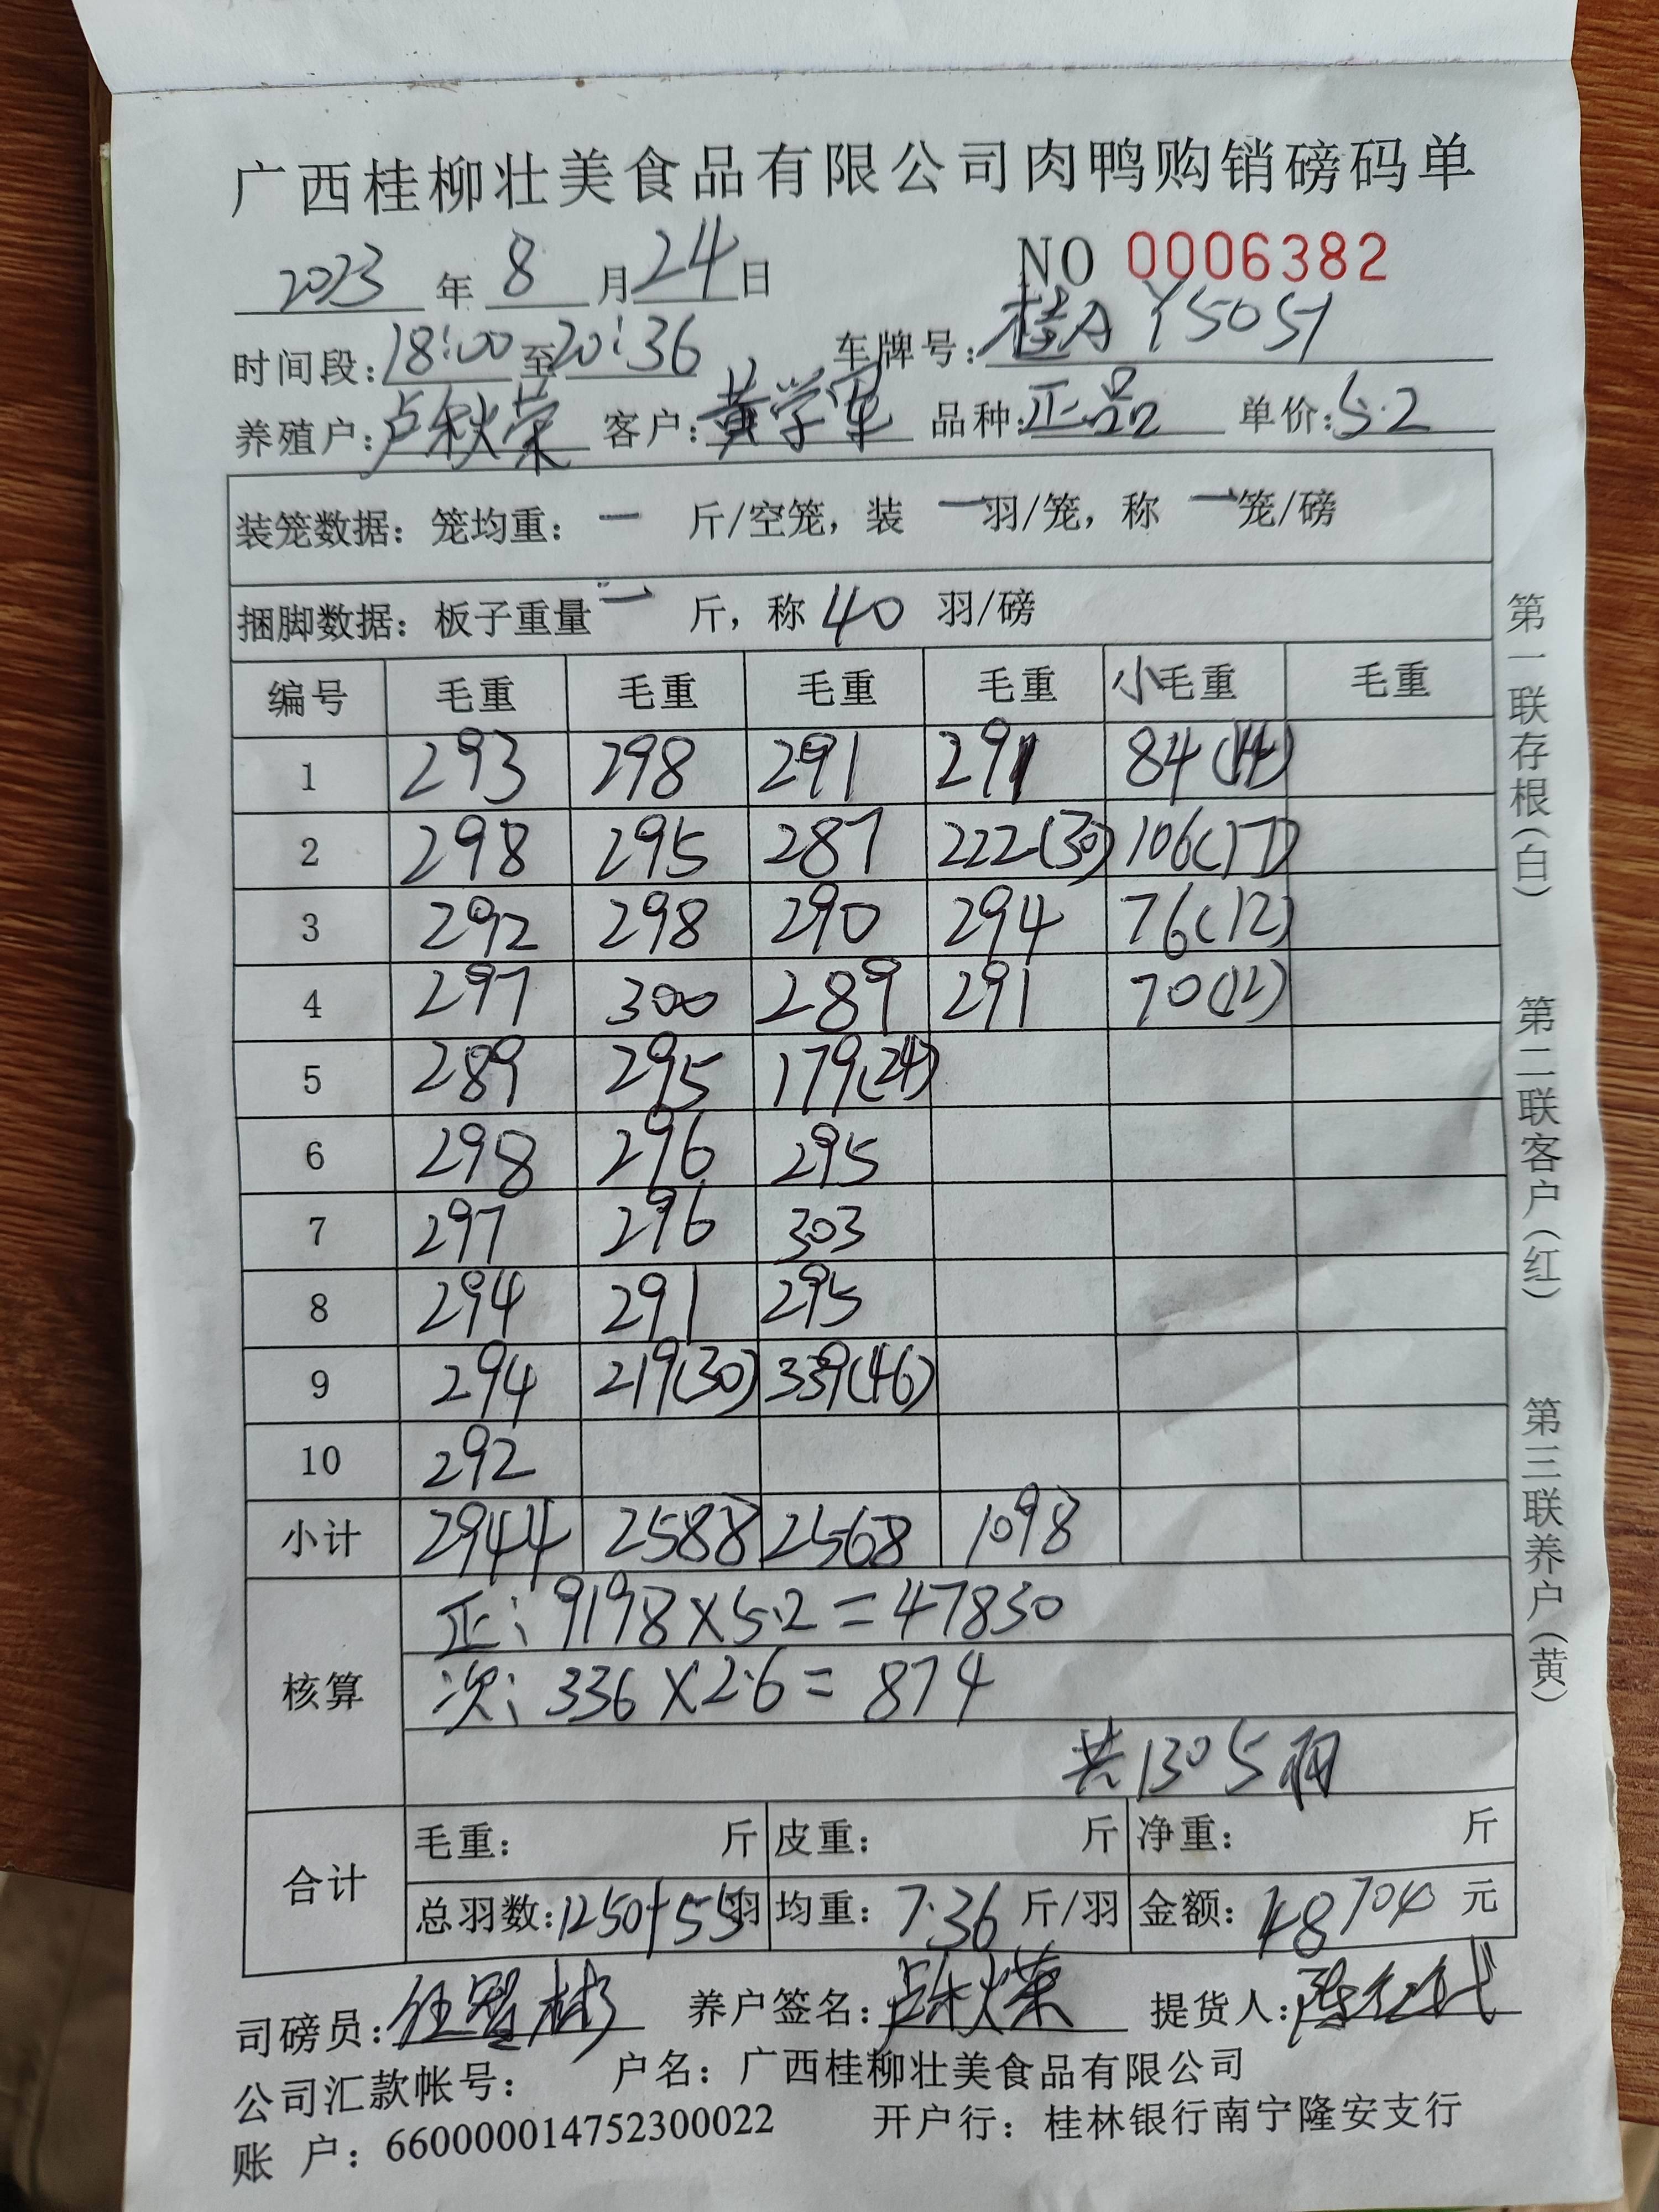 广西桂柳壮美食品有限公司肉鸭购销磅码单
2023 年 8 月 24 日 NO 0006382
时间段: 18:00 至 20:36 车牌号: 桂A Y5051
养殖户: 卢秋荣 客户: 黄学军 品种: 正品 单价: 5.2
装笼数据: 笼均重: 一 斤/空笼, 装 一 羽/笼, 称 一 笼/磅
捆脚数据: 板子重量 一 斤, 称 40 羽/磅
编号 毛重 毛重 毛重 毛重 小毛重 毛重
1 293 298 291 291 84(14)
2 298 295 287 222(30) 106(17)
3 292 298 290 294 76(12)
4 297 300 289 291 70(12)
5 289 295 179(24)
6 298 296 295
7 297 296 303
8 294 291 295
9 294 219(30) 339(46)
10 292
小计 2944 2588 2568 1098
核算
正: 9198×5.2=47830
次: 336×2.6=874
共1305羽
合计
毛重: 斤 皮重: 斤 净重: 斤
总羽数: 1250+55羽 均重: 7.36 斤/羽 金额: 48704 元
司磅员: 养户签名: 卢秋荣 提货人:
公司汇款帐号: 户名: 广西桂柳壮美食品有限公司
账 户: 660000014752300022 开户行: 桂林银行南宁隆安支行
第一联存根(白)
第二联客户(红)
第三联养户(黄)